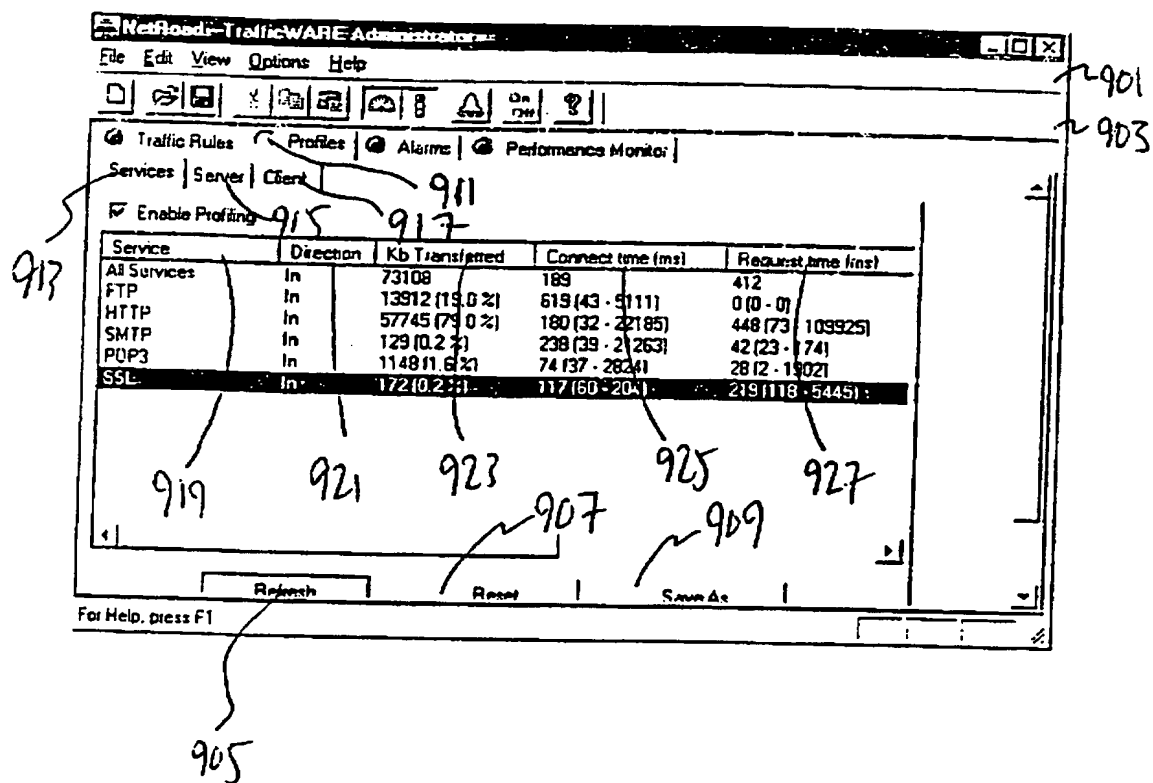 NetRoads-TrafficWARE Administrator
File Edit View Options Help
901
On Off ?
903
Traffic Rules Profiles Alarms Performance Monitor
Services Server Client
911
Enable Profiling
915 917
Service Direction Kb Transferred Connect time (ms) Request time (ms)
913
All Services In 73108 189 412
FTP In 13912 (19.0 %) 619 (43 - 5111) 0 (0 - 0)
HTTP In 57745 (79.0 %) 180 (32 - 22185) 448 (73 - 109925)
SMTP In 129 (0.2 %) 238 (39 - 21263) 42 (23 - 174)
POP3 In 1148 (1.6 %) 74 (37 - 2824) 28 (2 - 1902)
SSL In 172 (0.2 %) 117 (60 - 204) 219 (118 - 5445)
919 921 923 925 927
907 909
Refresh Reset Save As
For Help, press F1
905